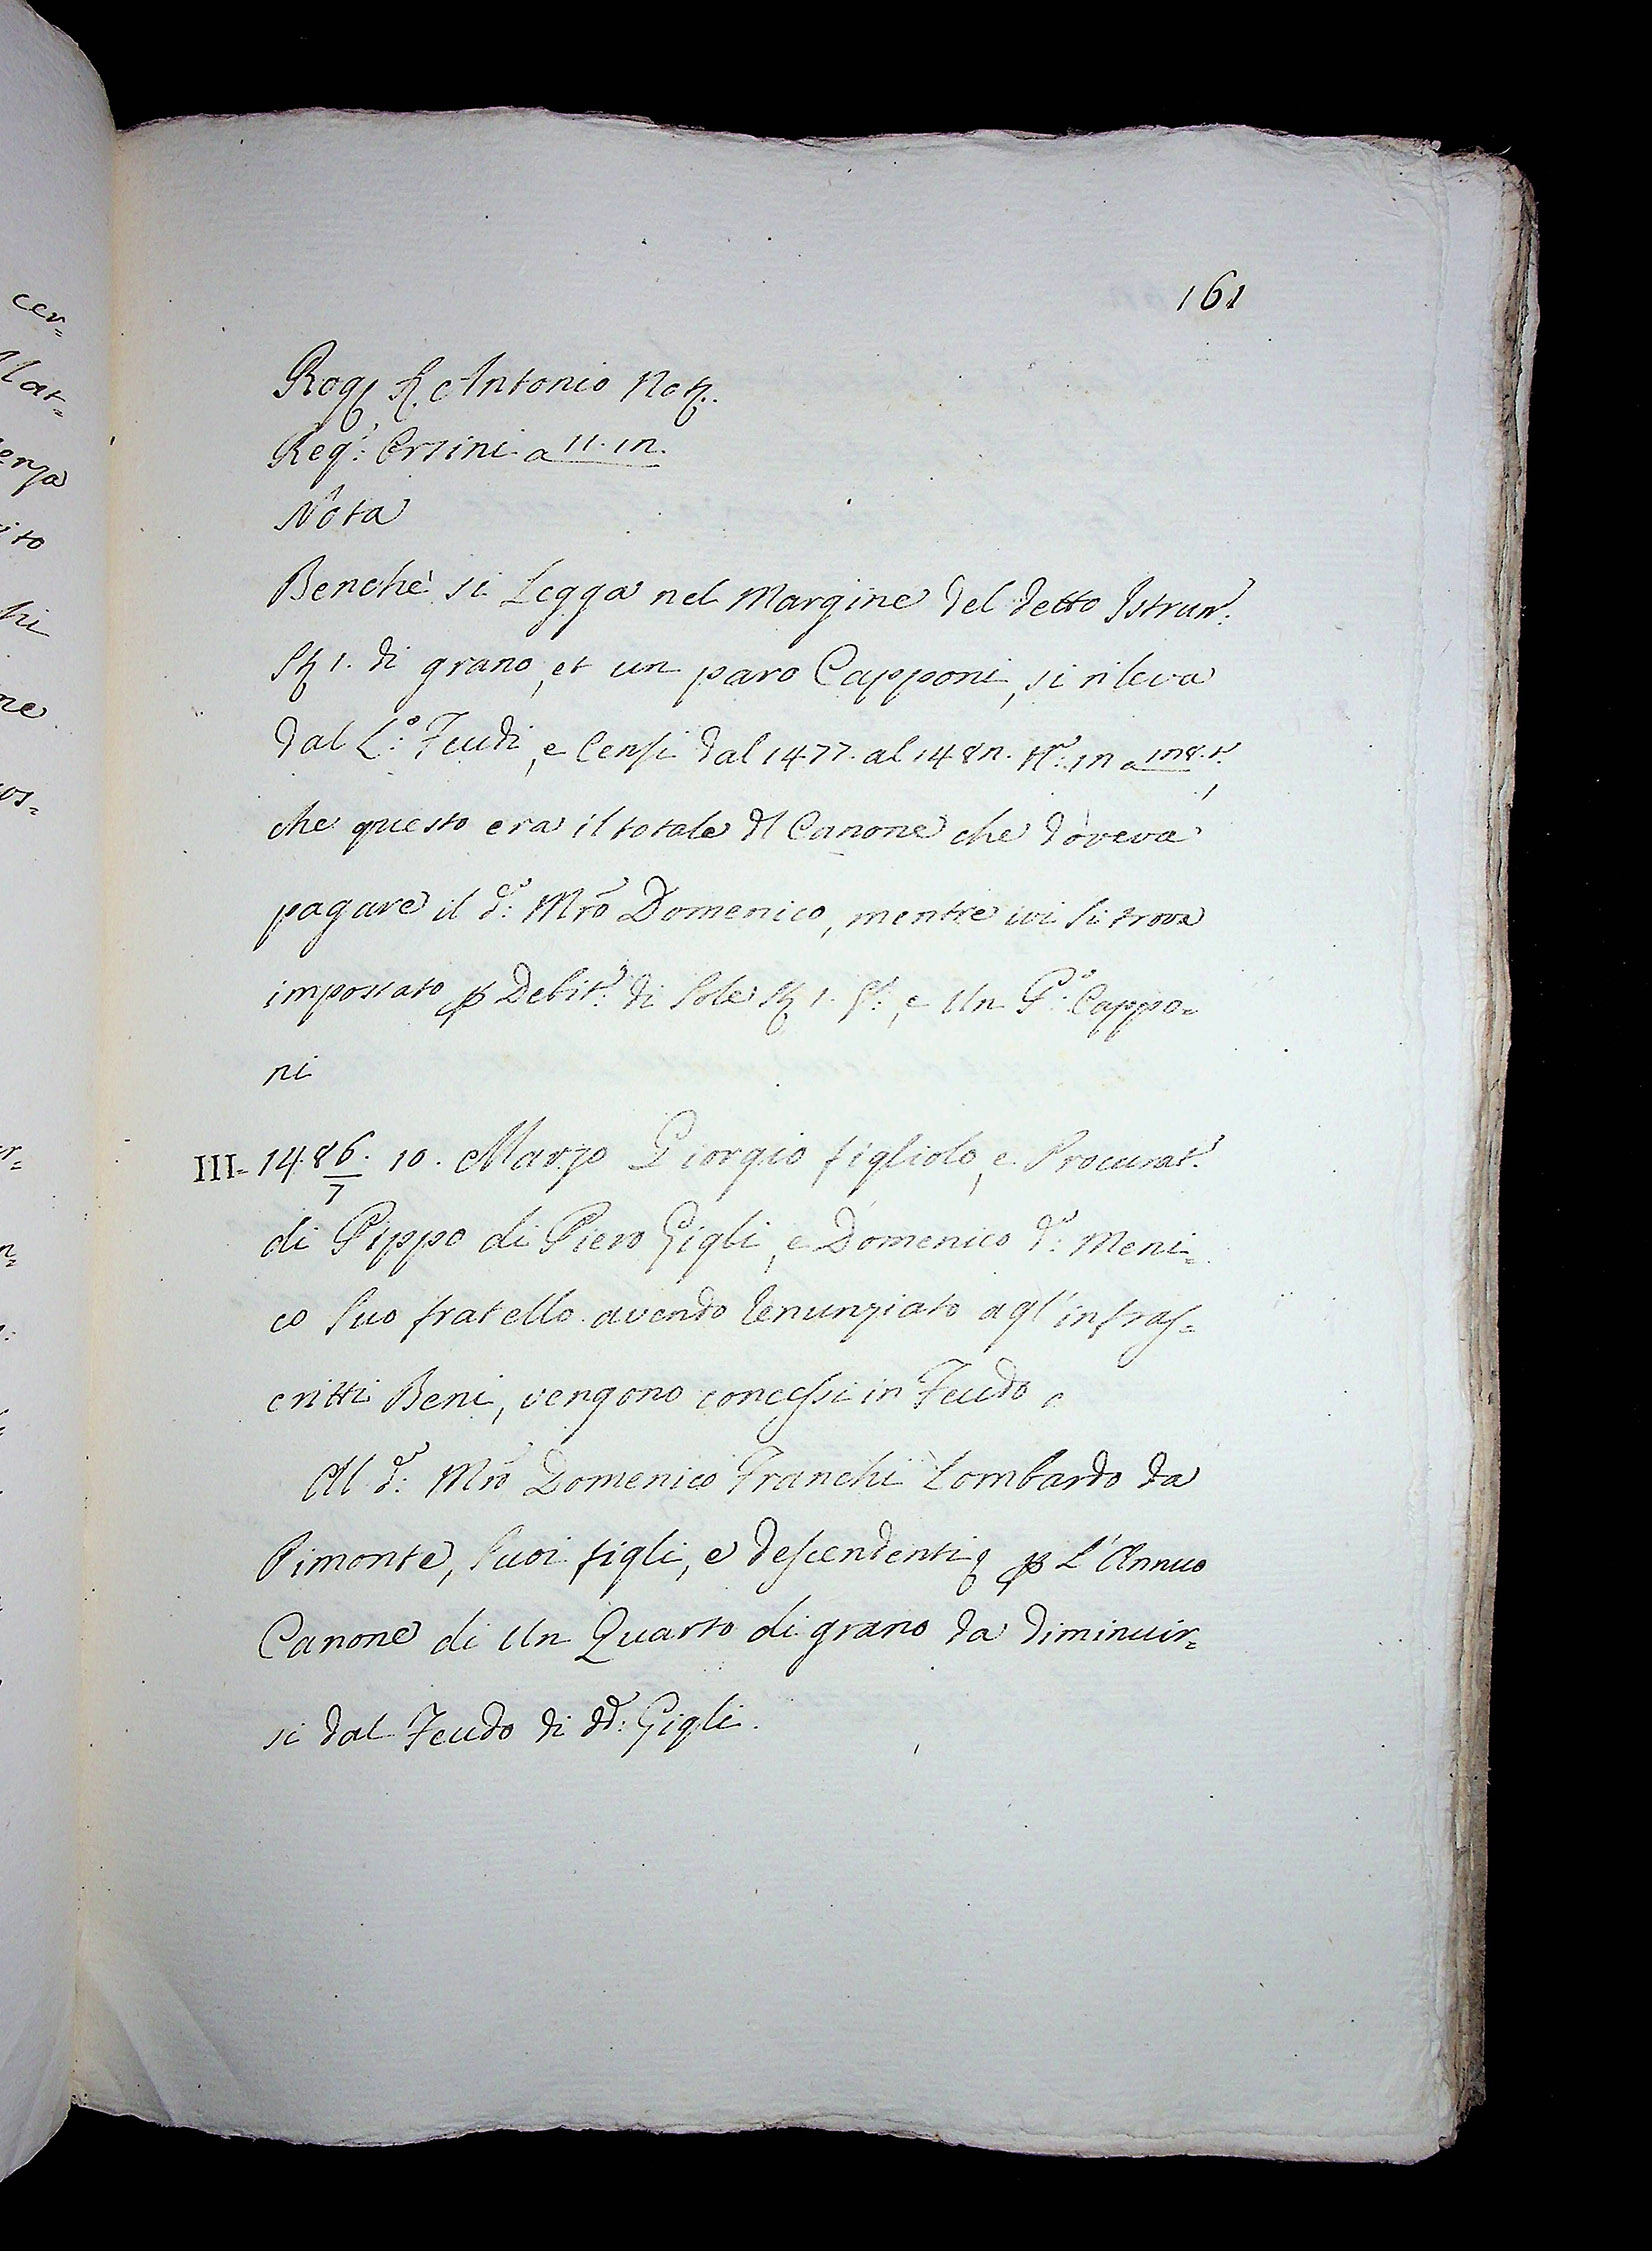 161
Rog. S. Antonio Not.
Reg.º Orsini a 11. in.
Nota
Benchè si Legga nel Margine del detto Istrum.º
St. 1. di grano, et un paro Capponi, si rileva
dal L.º Feudi, e Censi dal 1477. al 148n. N.º in a 1n8.t.
che questo era il totale dl Canone che doveva
pagare il d.º Mro Domenico, mentre ivi si trova
impostato p Debit.e di Sole St. 1. g.º, e Un P.º Cappo=
ni
III- 1486/7. 10. Marzo Giorgio figliolo, e Procurat.e
di Pippo di Piero Gigli, e Domenico d.º Meni=
co Suo fratello avendo renunziato agl'infras=
critti Beni, vengono concessi in Feudo
Al d.º Mro Domenico Franchi Lombardo da
Pimonte, Suoi figli, e descendenti p L'Annuo
Canone di Un Quarto di grano da diminuir=
si dal Feudo di dd.i Gigli.
cer=
lat=
erza
ito
hi
ne
os=